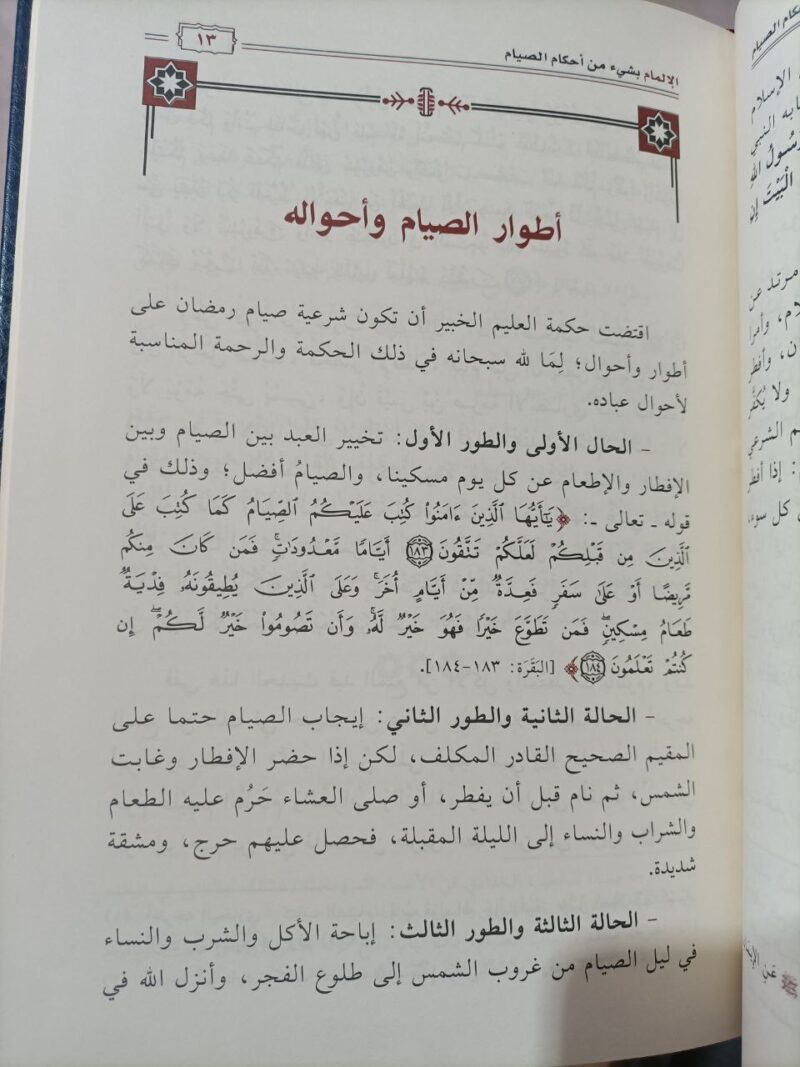 الإلمام بشيء من أحكام الصيام
١٣
أطوار الصيام وأحواله
اقتضت حكمة العليم الخبير أن تكون شرعية صيام رمضان على
أطوار وأحوال؛ لِمَا لله سبحانه في ذلك الحكمة والرحمة المناسبة
لأحوال عباده.
- الحال الأولى والطور الأول: تخيير العبد بين الصيام وبين
الإفطار والإطعام عن كل يوم مسكينا، والصيامُ أفضل؛ وذلك في
قوله ـ تعالى ـ: ﴿يَٰٓأَيُّهَا ٱلَّذِينَ ءَامَنُوا۟ كُتِبَ عَلَيْكُمُ ٱلصِّيَامُ كَمَا كُتِبَ عَلَى
ٱلَّذِينَ مِن قَبْلِكُمْ لَعَلَّكُمْ تَتَّقُونَ ١٨٣ أَيَّامًا مَّعْدُودَٰتٍ ۚ فَمَن كَانَ مِنكُم
مَّرِيضًا أَوْ عَلَىٰ سَفَرٍ فَعِدَّةٌ مِّنْ أَيَّامٍ أُخَرَ ۚ وَعَلَى ٱلَّذِينَ يُطِيقُونَهُۥ فِدْيَةٌ
طَعَامُ مِسْكِينٍ ۖ فَمَن تَطَوَّعَ خَيْرًا فَهُوَ خَيْرٌ لَّهُۥ ۚ وَأَن تَصُومُوا۟ خَيْرٌ لَّكُمْ ۖ إِن
كُنتُمْ تَعْلَمُونَ ١٨٤﴾ [البَقَرَة: ١٨٣-١٨٤].
- الحالة الثانية والطور الثاني: إيجاب الصيام حتما على
المقيم الصحيح القادر المكلف، لكن إذا حضر الإفطار وغابت
الشمس، ثم نام قبل أن يفطر، أو صلى العشاء حَرُم عليه الطعام
والشراب والنساء إلى الليلة المقبلة، فحصل عليهم حرج، ومشقة
شديدة.
- الحالة الثالثة والطور الثالث: إباحة الأكل والشرب والنساء
في ليل الصيام من غروب الشمس إلى طلوع الفجر، وأنزل الله في
الإسلام
النبي
رَسُولُ الله
الْبَيْتَ إن
مرتد عن
وأفطر
ولا يُكفَّر
الشرعي
: إذا أفطر
كل سوء،